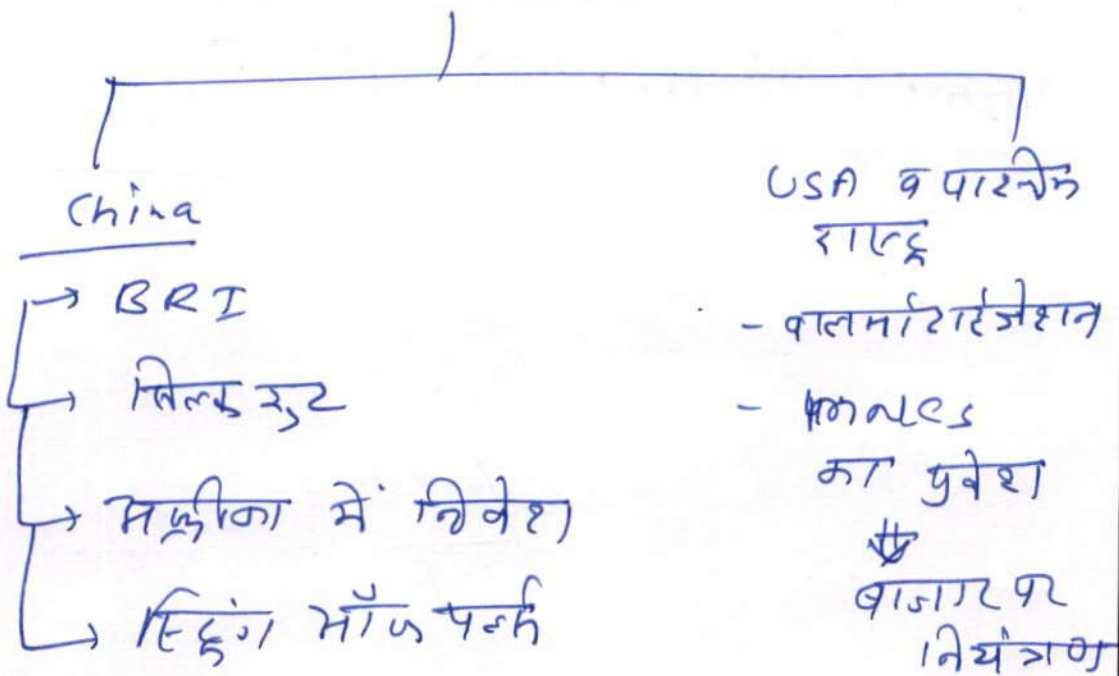 China
→ BRI
→ सिल्क रूट
→ अफ्रीका में निवेश
→ स्ट्रिंग ऑफ पर्ल्स
USA व पाश्चिम
राष्ट्र
- वालमार्टाईजेशन
- MNCs
का प्रवेश
⇓
बाजार पर
नियंत्रण